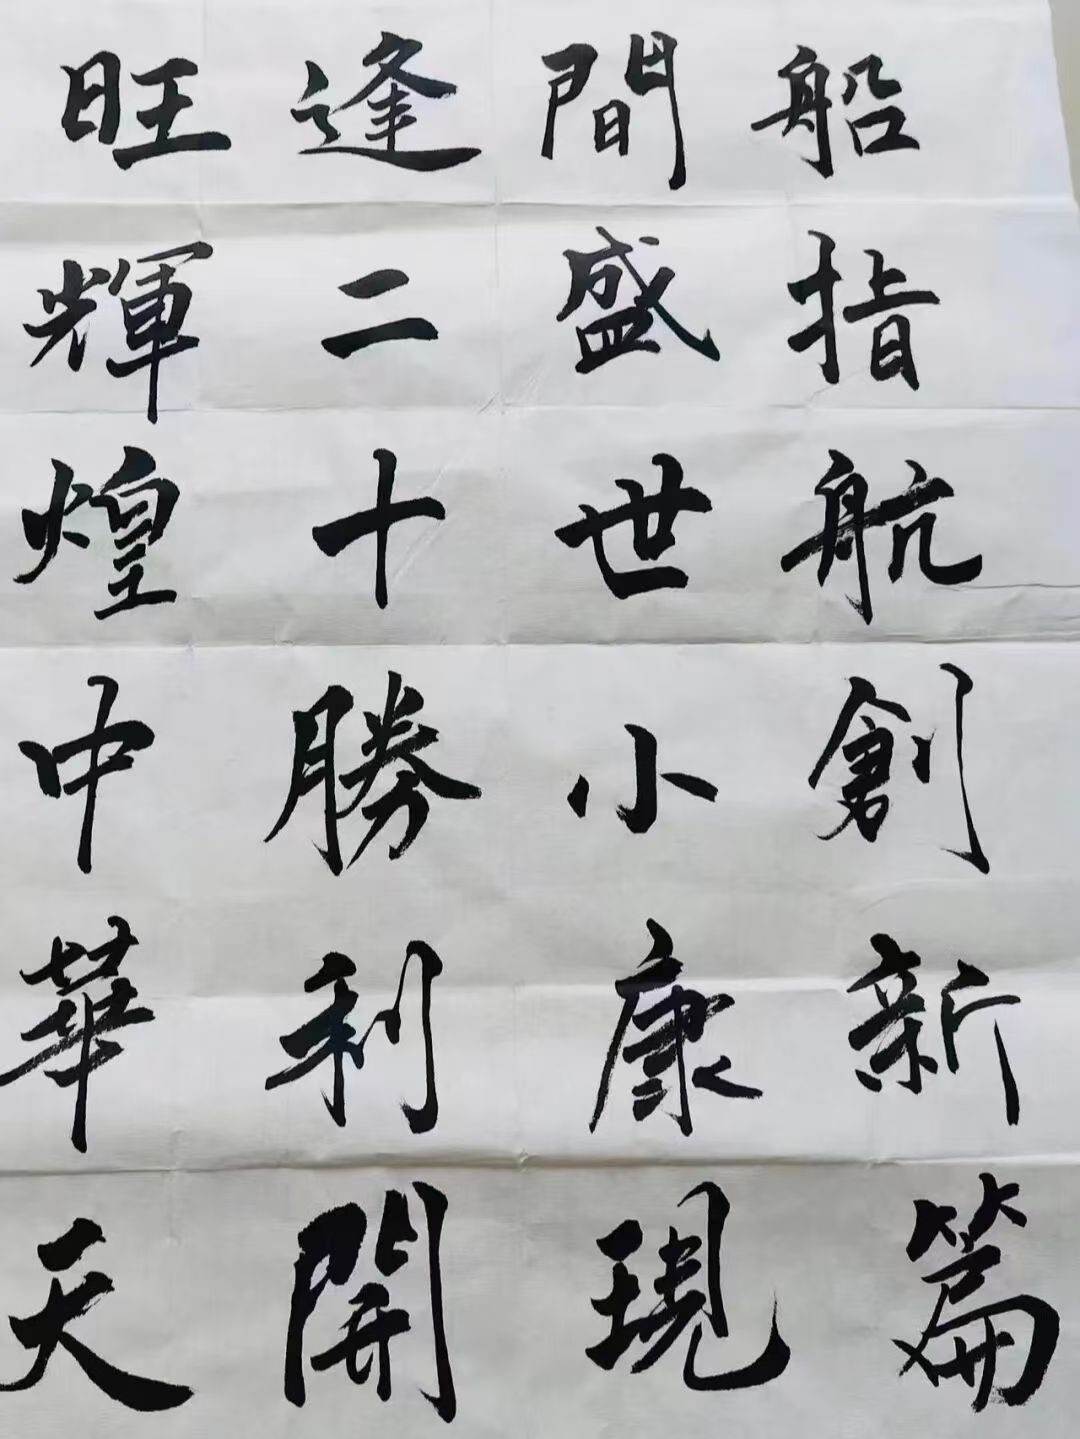 船指航創新篇
間盛世小康現
逢二十勝利開
旺輝煌中華天